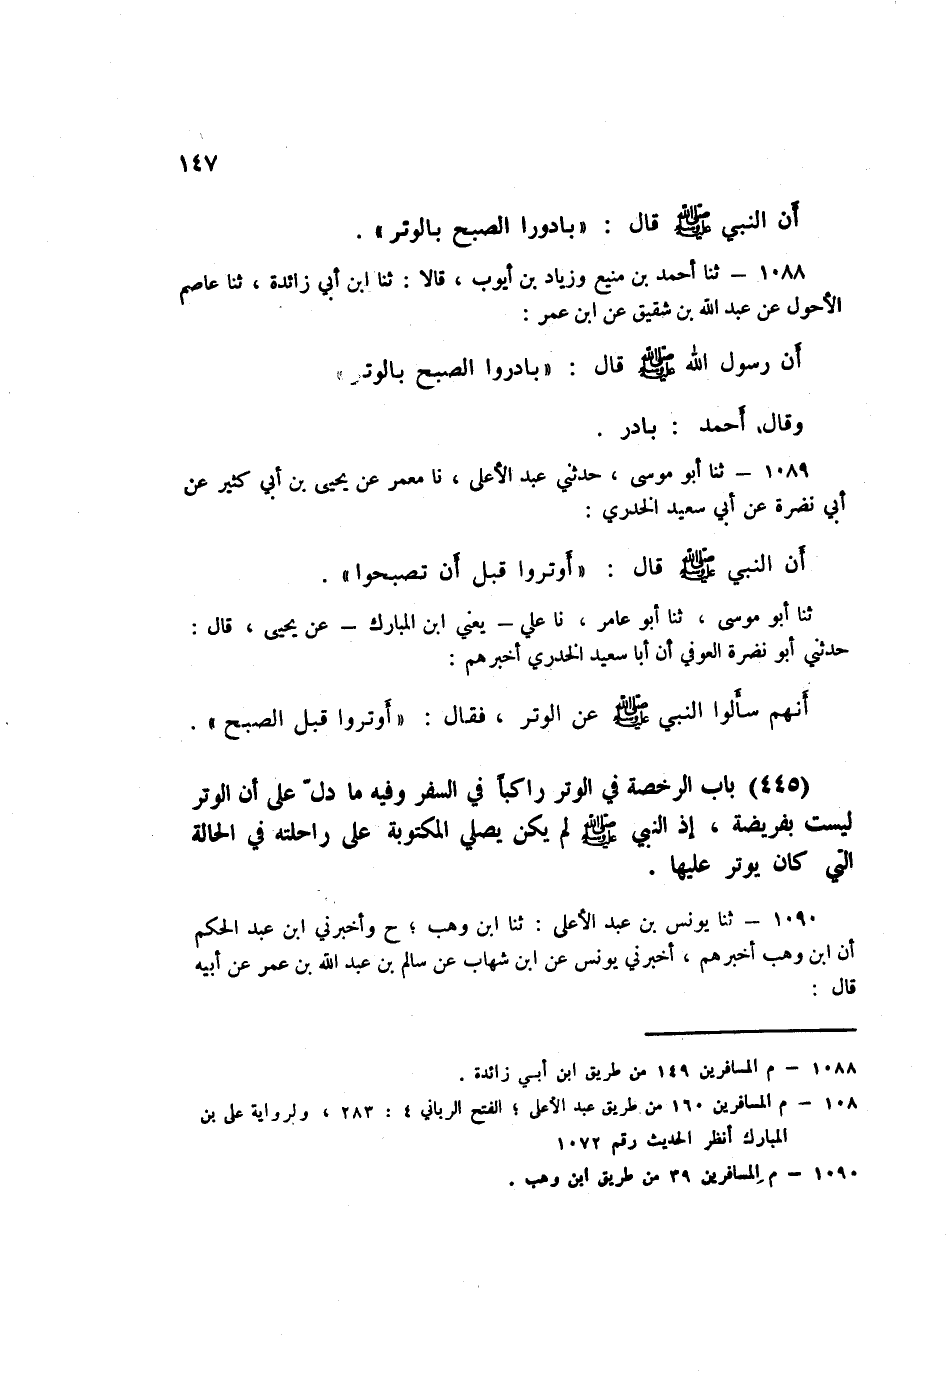 ١٤٧
أن النبي ﷺ قال : «بادورا الصبح بالوتر» .
١٠٨٨ – ثنا أحمد بن منيع وزياد بن أيوب ، قالا : ثنا ابن أبي زائدة ، ثنا عاصم
الأحول عن عبد الله بن شقيق عن ابن عمر :
أن رسول الله ﷺ قال : «بادروا الصبح بالوتر»
وقال أحمد : بادر .
١٠٨٩ – ثنا أبو موسى ، حدثني عبد الأعلى ، نا معمر عن يحيى بن أبي كثير عن
أبي نضرة عن أبي سعيد الخدري :
أن النبي ﷺ قال : «أوتروا قبل أن تصبحوا» .
ثنا أبو موسى ، ثنا أبو عامر ، نا علي – يعني ابن المبارك – عن يحيى ، قال :
حدثني أبو نضرة العوفي أن أبا سعيد الخدري أخبرهم :
أنهم سألوا النبي ﷺ عن الوتر ، فقال : «أوتروا قبل الصبح» .
(٤٤٥) باب الرخصة في الوتر راكباً في السفر وفيه ما دلّ على أن الوتر
ليست بفريضة ، إذ النبي ﷺ لم يكن يصلي المكتوبة على راحلته في الحالة
التي كان يوتر عليها .
١٠٩٠ – ثنا يونس بن عبد الأعلى : ثنا ابن وهب ؛ ح وأخبرني ابن عبد الحكم
أن ابن وهب أخبرهم ، أخبرني يونس عن ابن شهاب عن سالم بن عبد الله بن عمر عن أبيه
قال :
١٠٨٨ – م المسافرين ١٤٩ من طريق ابن أبي زائدة .
١٠٨ – م المسافرين ١٦٠ من طريق عبد الأعلى ؛ الفتح الرباني ٤ : ٢٨٣ ، ولرواية علي بن
المبارك أنظر الحديث رقم ١٠٧٢
١٠٩٠ – م المسافرين ٣٩ من طريق ابن وهب .